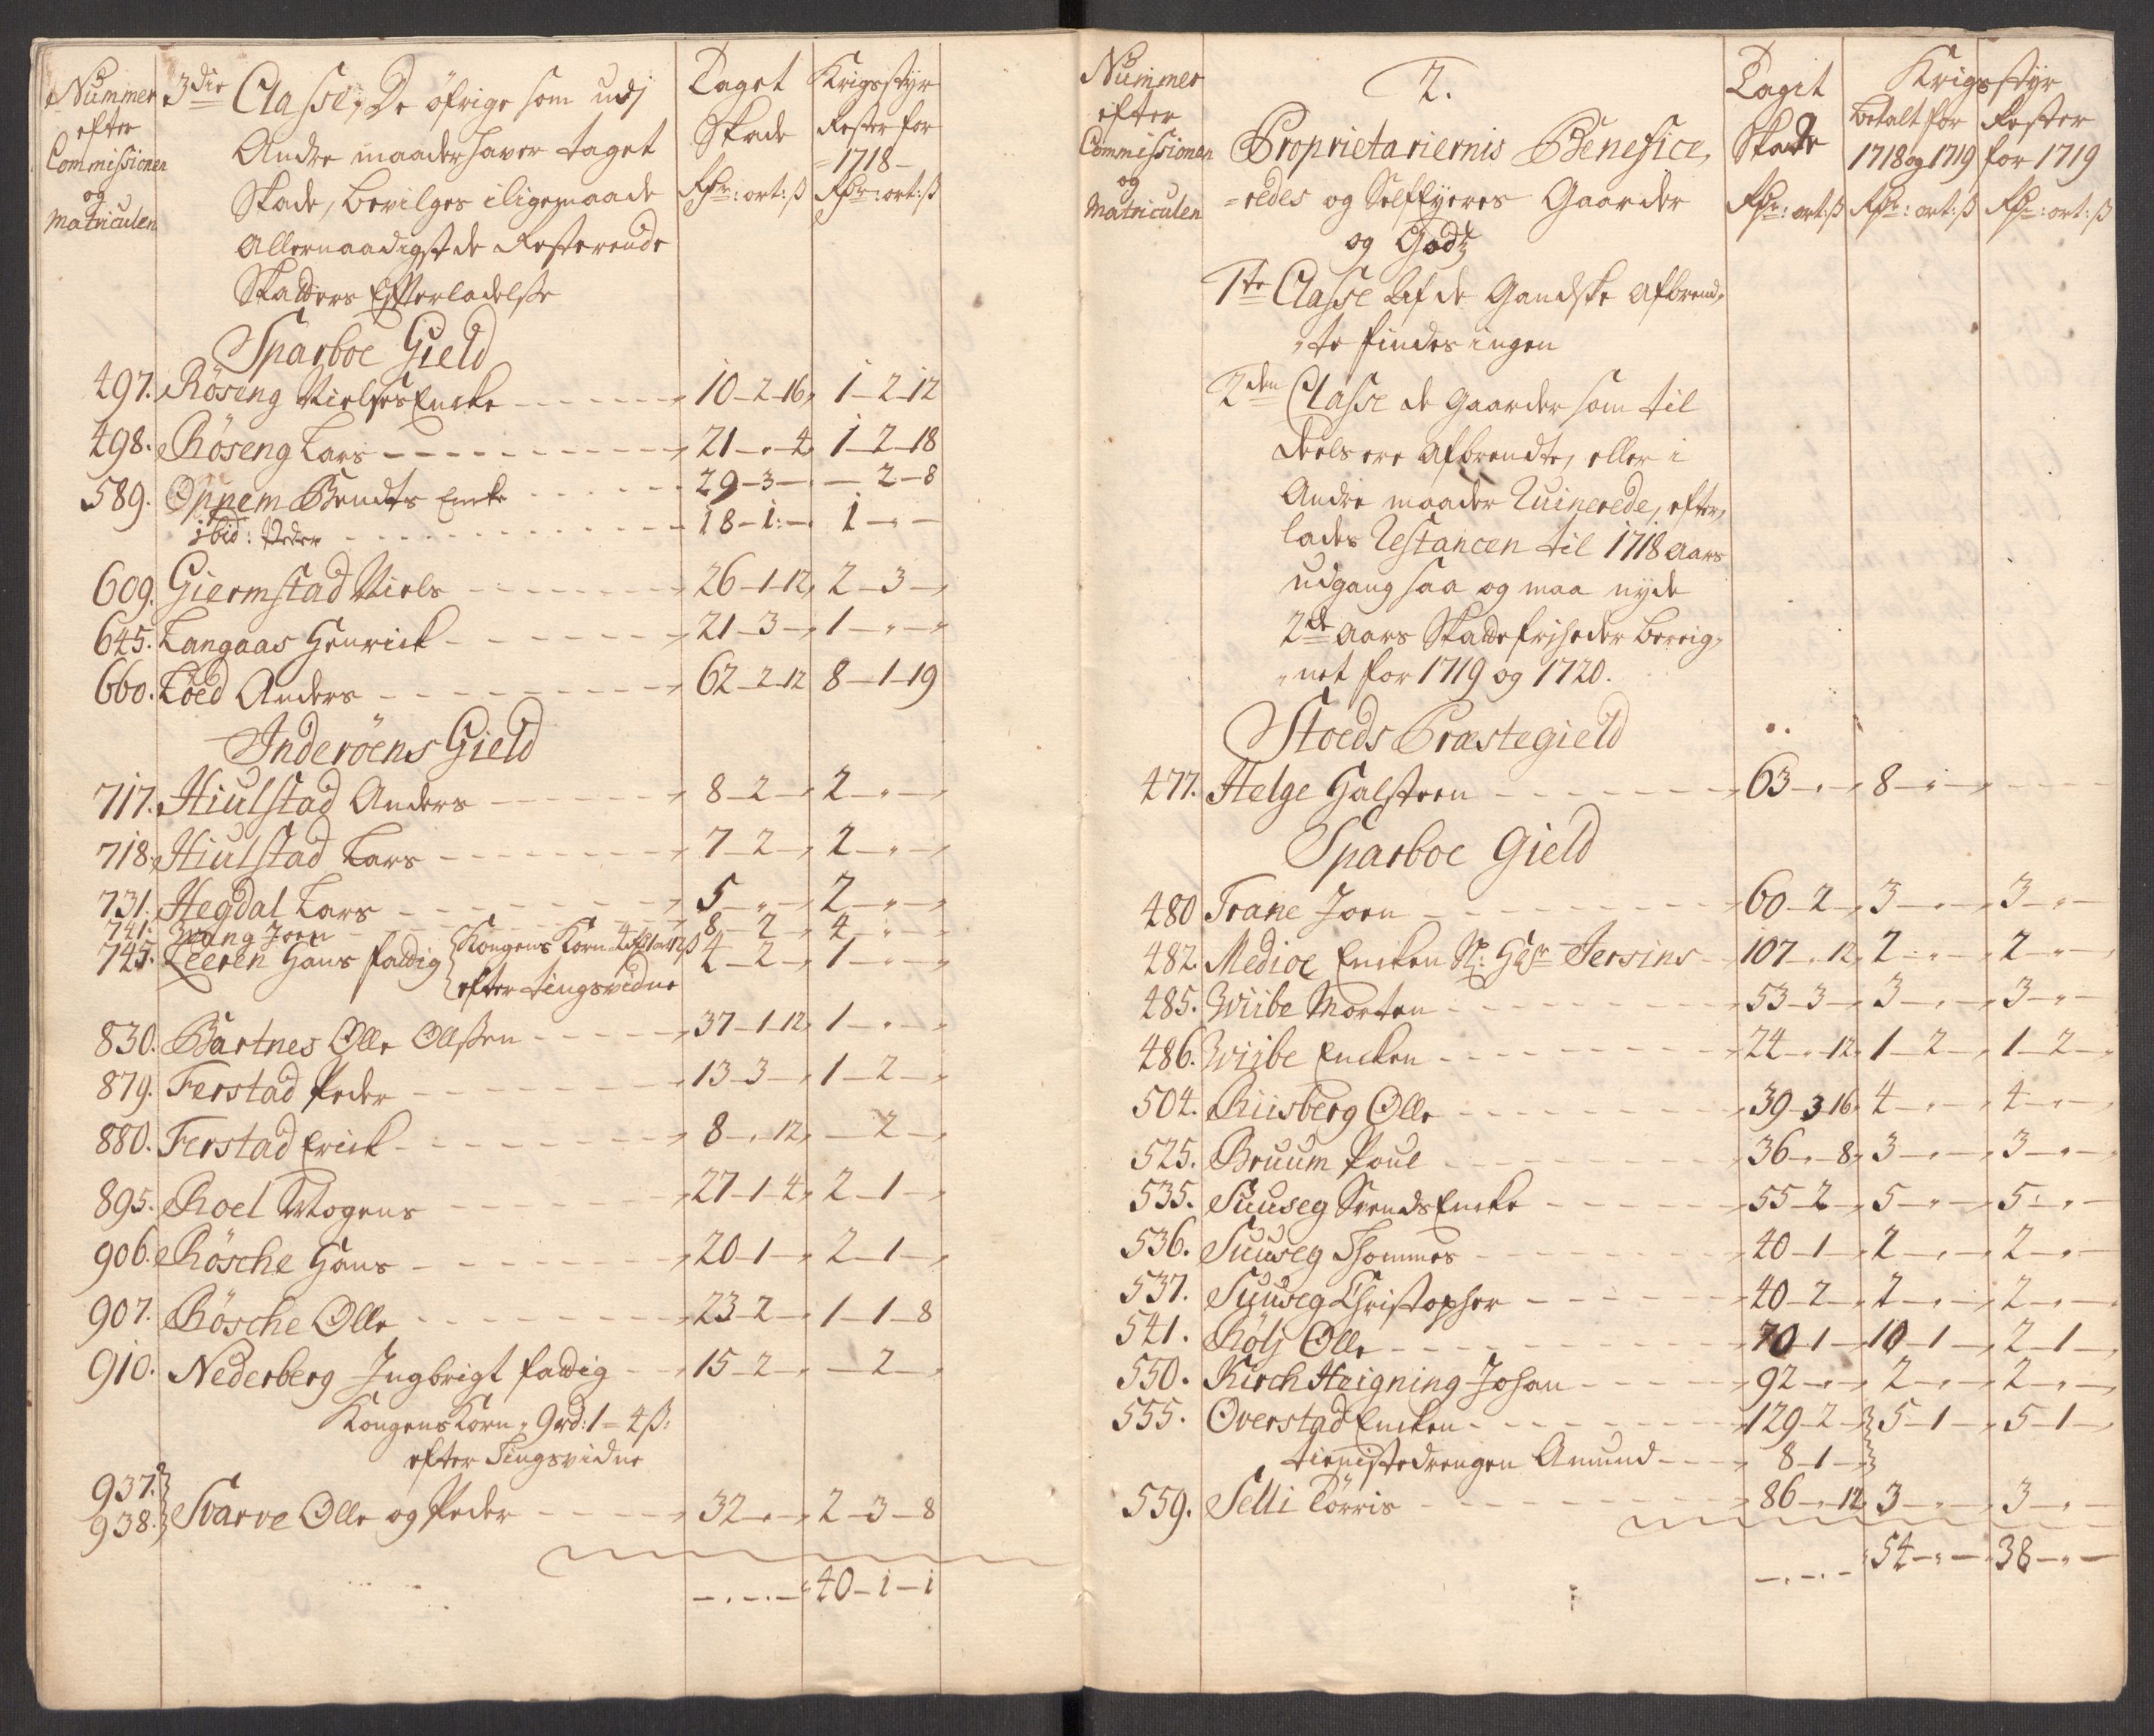 Nummer
efter
Commissionen
og
Matriculen
3die Classe, De öfrige som udj
Andre maader hafver taget
Skade, bevilges iligemaade
Allernaadigst de Resterende
Skatters Efterladelse
Taget
Skade
Rdr: ort: ß
Krigsstyr
Rester for
1718
Rdr: ort: ß
Sparboe Gield
497. Rösing Nielses Encke 10-2-16 1-2-12
498. Röseng Lars 21-"-4 1-2-18
589. Oppem Bendts Encke 29-3- - 2-8
ibid: Peder 18-1- 1-"-
609. Giermstad Niels 26-1-12 2-3-"
645. Langaas Henrich 21-3-" 1-"-"
660. Löed Anders 62-2-12 8-1-19
Inderöens Gield
717. Hiulstad Anders 8-2-" 2-"-"
718. Hiulstad Lars 7-2-" 2-"-"
731. Hegdal Lars 5-"-" 2-"-"
741. Wang Joen 8-2 4-"-
745. Leeren Hans fattig Kongens Korn 4 rd 1 ort 12 ß 4-2-" 1-"-"
efter tingsvidne
830. Bartnes Olle Olssen 37-1-12 1-"-"
879. Ferstad Peder 13-3-" 1-2-"
880. Ferstad Erich 8-"-12 -2-"
895. Roel Mogens 27-1-4 2-1-"
906. Rösche Hans 20-1-" 2-1-"
907. Rösche Olle 23-2-" 1-1-8
910. Nederberg Ingbrigt fattig 15-2-" -2-"
Kongens Korn 9 rd: 1-4 ß:
efter Tingsvidne
937.
938. Svarve Olle og Peder 32-"-" 2-3-8
40-1-1
Nummer
efter
Commissionen
og
Matriculen
2.
Proprietariernis Benefice,
=redes og Selfeyeres Gaarder
og Godtz
Tagit
Skade
Rdr: ort: ß
Krigsstyr
betalt for
1718 og 1719
Rdr: ort: ß
Rester
for 1719
Rdr: ort: ß
1te Classe Af de Gandske afbrend,
"te findes ingen
2den Classe de gaarder som til
deels ere Afbrendte, eller i
Andre maader Ruinerede, efter,
lades Restancen til 1718 aars
udgang saa og maa nyde
2de aars Skattefriheder bereig,
"net for 1719 og 1720.
Stoeds Præstegield
477. Helge Halsteen 63-"-" 8-"-"
Sparboe Gield
480 Trane Joen 60-2-" 3-"-" 3-"-
482. Medioe Encken Sl: Hr Jersins 107-"-12 2-"-" 2-"-
485. Wiibe Morten 53-3-" 3-"-" 3-"-
486. Wiibe Encken 24-"-12 1-2-" 1-2-"
504. Riisberg Olle 39-3-16 4-"-" 4-"-
525. Bruum Poul 36-"-8 3-"-" 3-"-
535. Suuseg Svends Encke 55-2-" 5-"-" 5-"-
536. Suuseg Thommes 40-1-" 2-"-" 2-"-
537. Suuseg Christopher 40-2-" 2-"-" 2-"-
541. Rölj Olle 70-1-" 10-1-" 2-1-"
550. Kirch Heigning Johan 92-"-" 2-"-" 2-"-"
555. Overstad Encken 129-2-" 5-1-" 5-1-"
tienistedrengen Amund 8-1-"
559. Selli Törris 86-"-12 3-"-" 3-"-
54-"- 38-"-